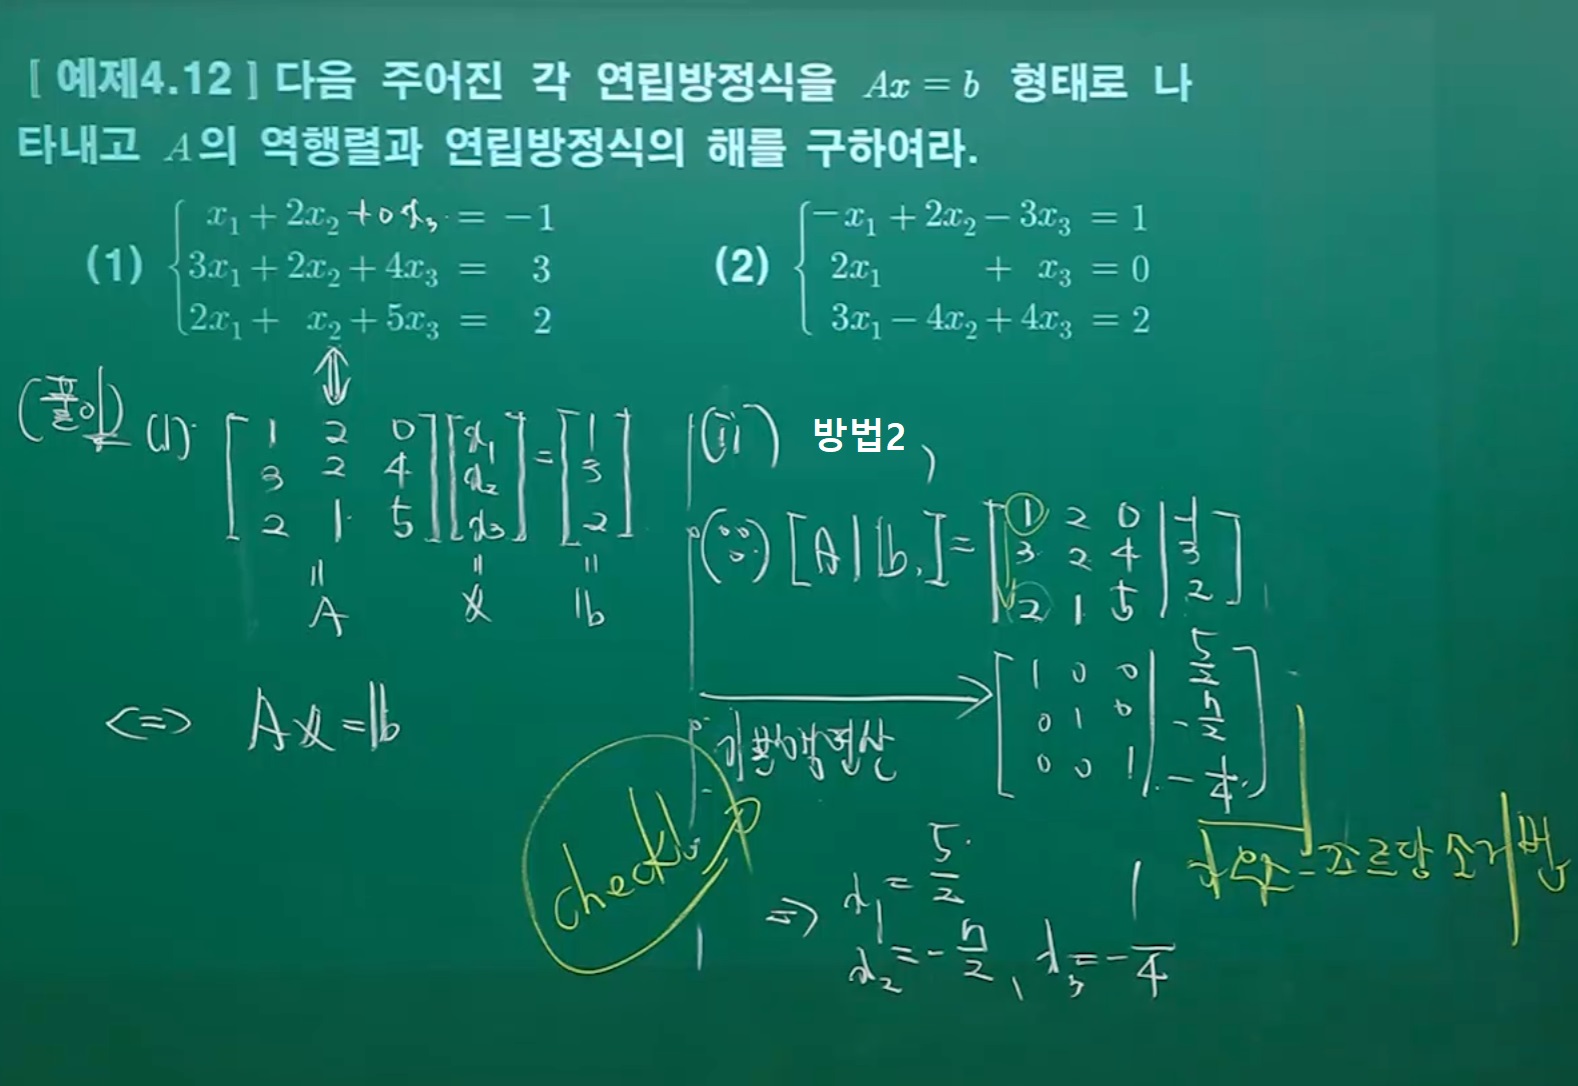 [ 예제4.12 ] 다음 주어진 각 연립방정식을 Ax = b 형태로 나
타내고 A의 역행렬과 연립방정식의 해를 구하여라.
(1) x₁ + 2x₂ + 0x₃ = −1
3x₁ + 2x₂ + 4x₃ = 3
2x₁ + x₂ + 5x₃ = 2
(2) −x₁ + 2x₂ − 3x₃ = 1
2x₁ + x₃ = 0
3x₁ − 4x₂ + 4x₃ = 2
(풀이) (1).
[ 1 2 0 ] [ x₁ ] = [ 1 ]
[ 3 2 4 ] [ x₂ ] [ 3 ]
[ 2 1 5 ] [ x₃ ] [ 2 ]
= = =
A x b
<=> Ax = b
(ii) 방법2
[A | b] = [ 1 2 0 | -1 ]
[ 3 2 4 | 3 ]
[ 2 1 5 | 2 ]
기본행연산
[ 1 0 0 | 5/2 ]
[ 0 1 0 | - ]
[ 0 0 1 | - 1/4 ]
check!
가우스-조르당 소거법
=> x₁ = 5/2
x₂ = - , x₃ = - 1/4